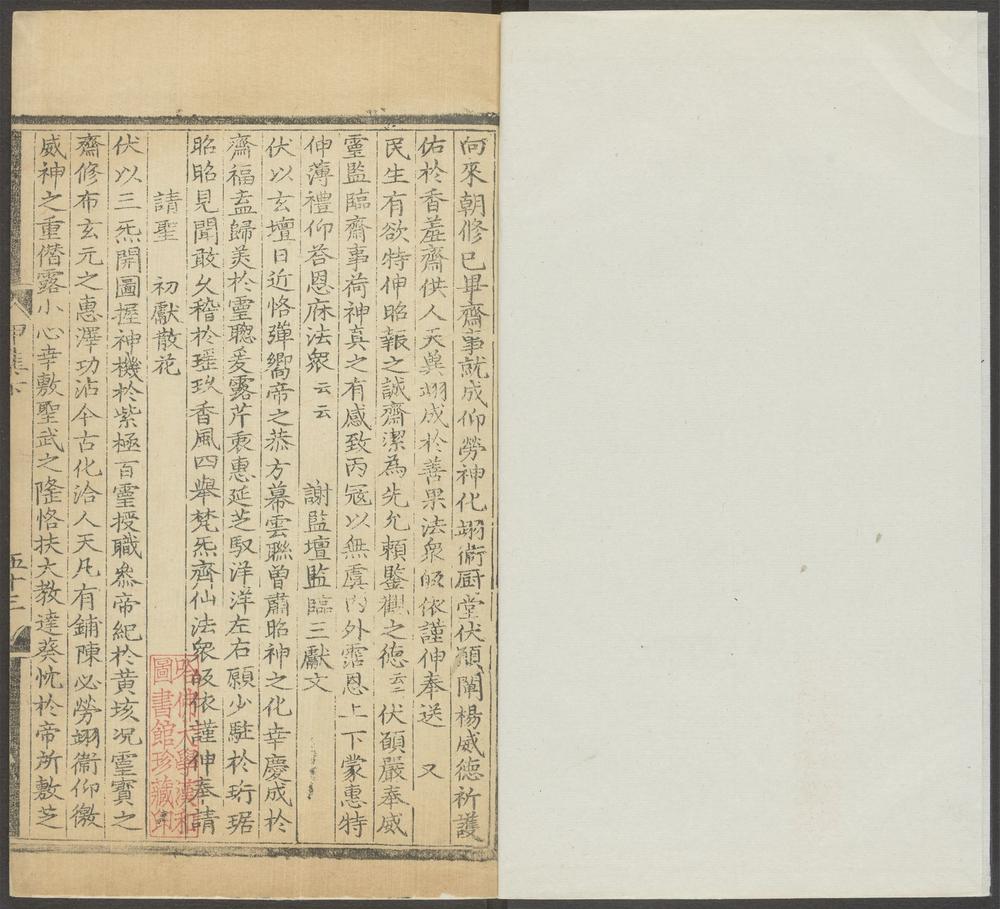 向來朝修已畢齋事就成仰勞神化翊衛厨堂伏願闡楊威德祈護
佑於香羞齋供人天兾翊成於善果法衆皈依謹伸奉送　又
民生有欲特伸昭報之誠齋潔為先允賴鑒觀之德云云伏願嚴奉威
霊監臨齋事荷神真之有感致丙寇以無虞内外霑恩上下蒙惠特
伸薄禮仰荅恩庥法衆云云　謝監壇監臨三獻文
伏以玄壇日近恪殫嚮帝之恭方幕雲聯曽肅昭神之化幸慶成於
齋福盍歸美於霊聰爰露芹衷惠延芝馭洋洋左右願少駐於珩琚
昭昭見聞敢乆稽於瑶玖香風四舉梵炁齊仙法衆皈依謹伸奉請
請聖　初獻散花
伏以三炁開圖握神機於紫極百霊授職叅帝紀於黄垓况霊寳之
齋修布玄元之惠澤功沾今古化洽人天凡有鋪陳必勞翊衛仰徼
威神之重僭露小心幸敷聖武之隆恪扶大教達葵忱於帝所敷芝
甲集下
五十三
哈佛大學漢和
圖書館珍藏印